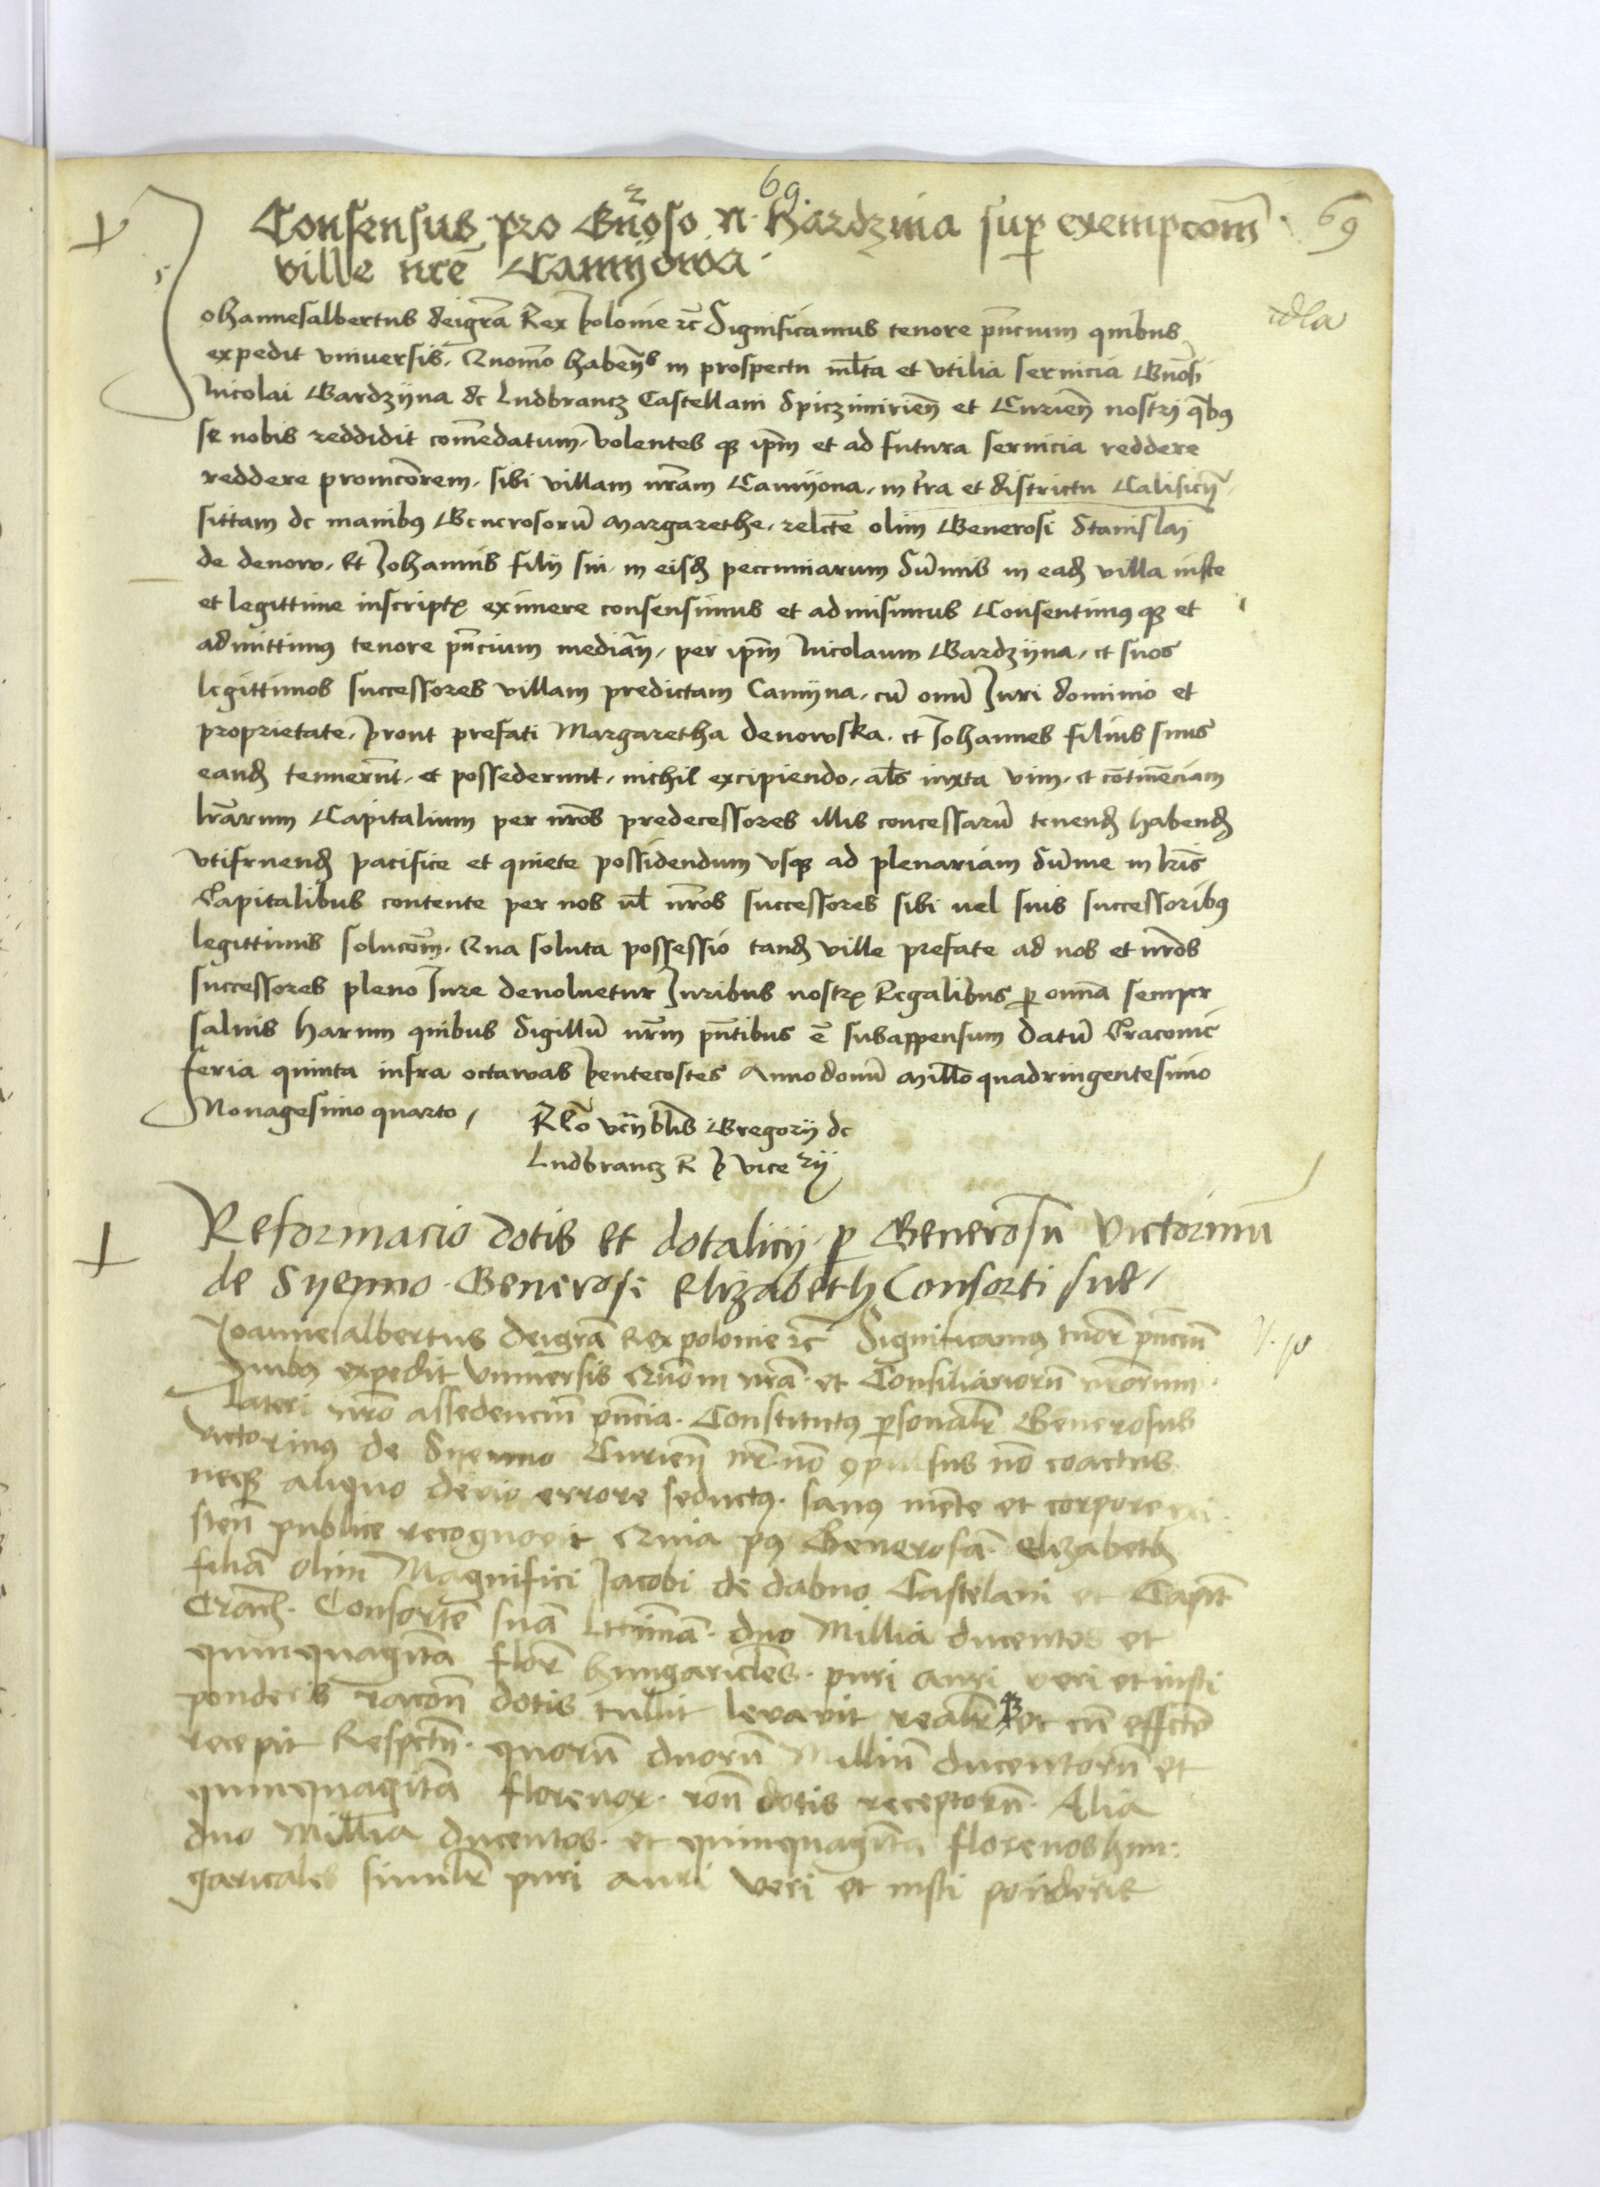 69.
Consensus pro Gñoso N. Bardzina sup exempcom̃
ville nr̃e Camyona.
69
Johannesalbertus deigrã Rex polonie ⁊c̃ Significamus tenore pñcium quibus
expedit vniuersis. Quomõ habeñs in prospectu ml̃ta et vtilia seruicia Gñosi
Nicolai Bardzyna de Ludbrancz Castellani Spiczimirieñ et Curieñ nostri qb9
se nobis reddidit com̃edatum. Volentes qȝ ip̃m et ad futura seruicia reddere
reddere promcõrem. sibi villam nr̃am Camyona. in tr̃a et districtu Calisieñ.
sittam de manibus Generosorũ Margarethe. relictẽ olim Generosi Stanislai
de denow. et Johannis filij sui. in eisd peccuniarum Sũmis in ead villa iuste
et legittime inscriptꝭ eximere consensimus et admisimus Consentimus qȝ et
admittimus tenore pñcium median̄. per ip̃m Nicolaum Bardzyna. et suos
legittimos successores villam predictam Camyna. cũ omĩ Juri dominio et
proprietate. prout prefati Margaretha denowska. et Johannes filius suus
eand tenuerũt. et possederunt. nichil excipiendo. al̃s iuxta vim. et cõtinẽciam
lr̃arum Capitalium per nr̃os predecessores illis concessarũ tenend habend
vtifruend pacifice et quiete possidendum vsqȝ ad plenariam Sũme in lr̃is
Capitalibus contente per nos ul̃ nr̃os successores sibi uel suis successoribus
legittimis solucõm̃. Qua soluta possessio tand ville prefate ad nos et nr̃os
successores pleno Jure deuoluetur Juribus nostrꝭ Regalibus p om̃a semper
saluis harum quibus Sigillũ nr̃m pñtibus ẽ subappensum datũ Cracouie
feria quinta infra octauas pentecostes Anno domĩ Millo quadringentesimo
Nonagesimo quarto.
Rl̃o veñblis Gregorij de
Ludbrancz R p vice ⁊ij
Reformacio dotis et dotalicij. p Generosũ Victorinũ
de Syenno. Generose Elizabeth Consorti sue.
Joannesalbertus deigrã Rex polonie ⁊c̃ Significamus tnor̃ pñciũ
Quibus expedit Vniuersis Quom in nrã. et Consiliariorũ nr̃orum.
Lateri nr̃o assedenciũ pñcia. Constitutus psonalr̃ Generosus
Victorinus de Syenno Curieñ nr̃ nõ cõpulsus nõ coactus
neqȝ aliquo deuio errore seductus. sanus mẽte et corpore
steñ publice recognouit Quia pꝰ Generosã. Elizabeth
filiã olim Magnifici Jacobi de dabno Castelani et Capit̃
Cracõ. Consortẽ suã Lttimã. duo Millia ducentos et
quinquagĩta flor̃ hungaricl̃es. puri auri veri et iusti
ponderis racoñ dotis tullit leuauit realr̃ qȝ et cũ effctũ
recepit Respctũ. quorũ duorũ Milliũ ducentorũ et
quinquagĩta florenorꝝ. roñ dotis receptorũ. Alia
duo Millia ducentos. et quinquagĩta florenos hun:
garicales similr̃ puri auri veri et iusti ponderis